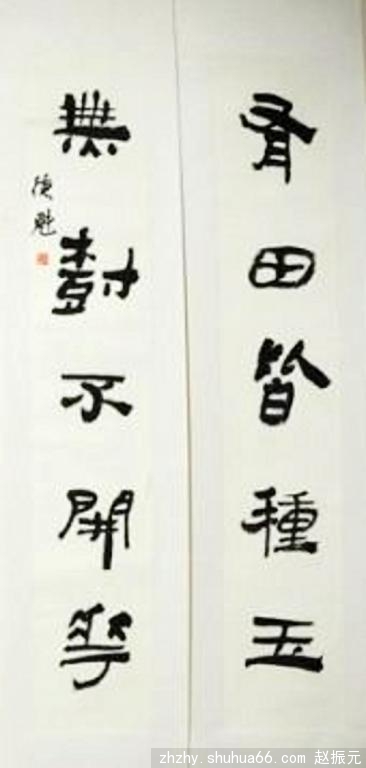 有田皆種玉
無樹不開花
zhzhy.shuhua66.com 赵振元